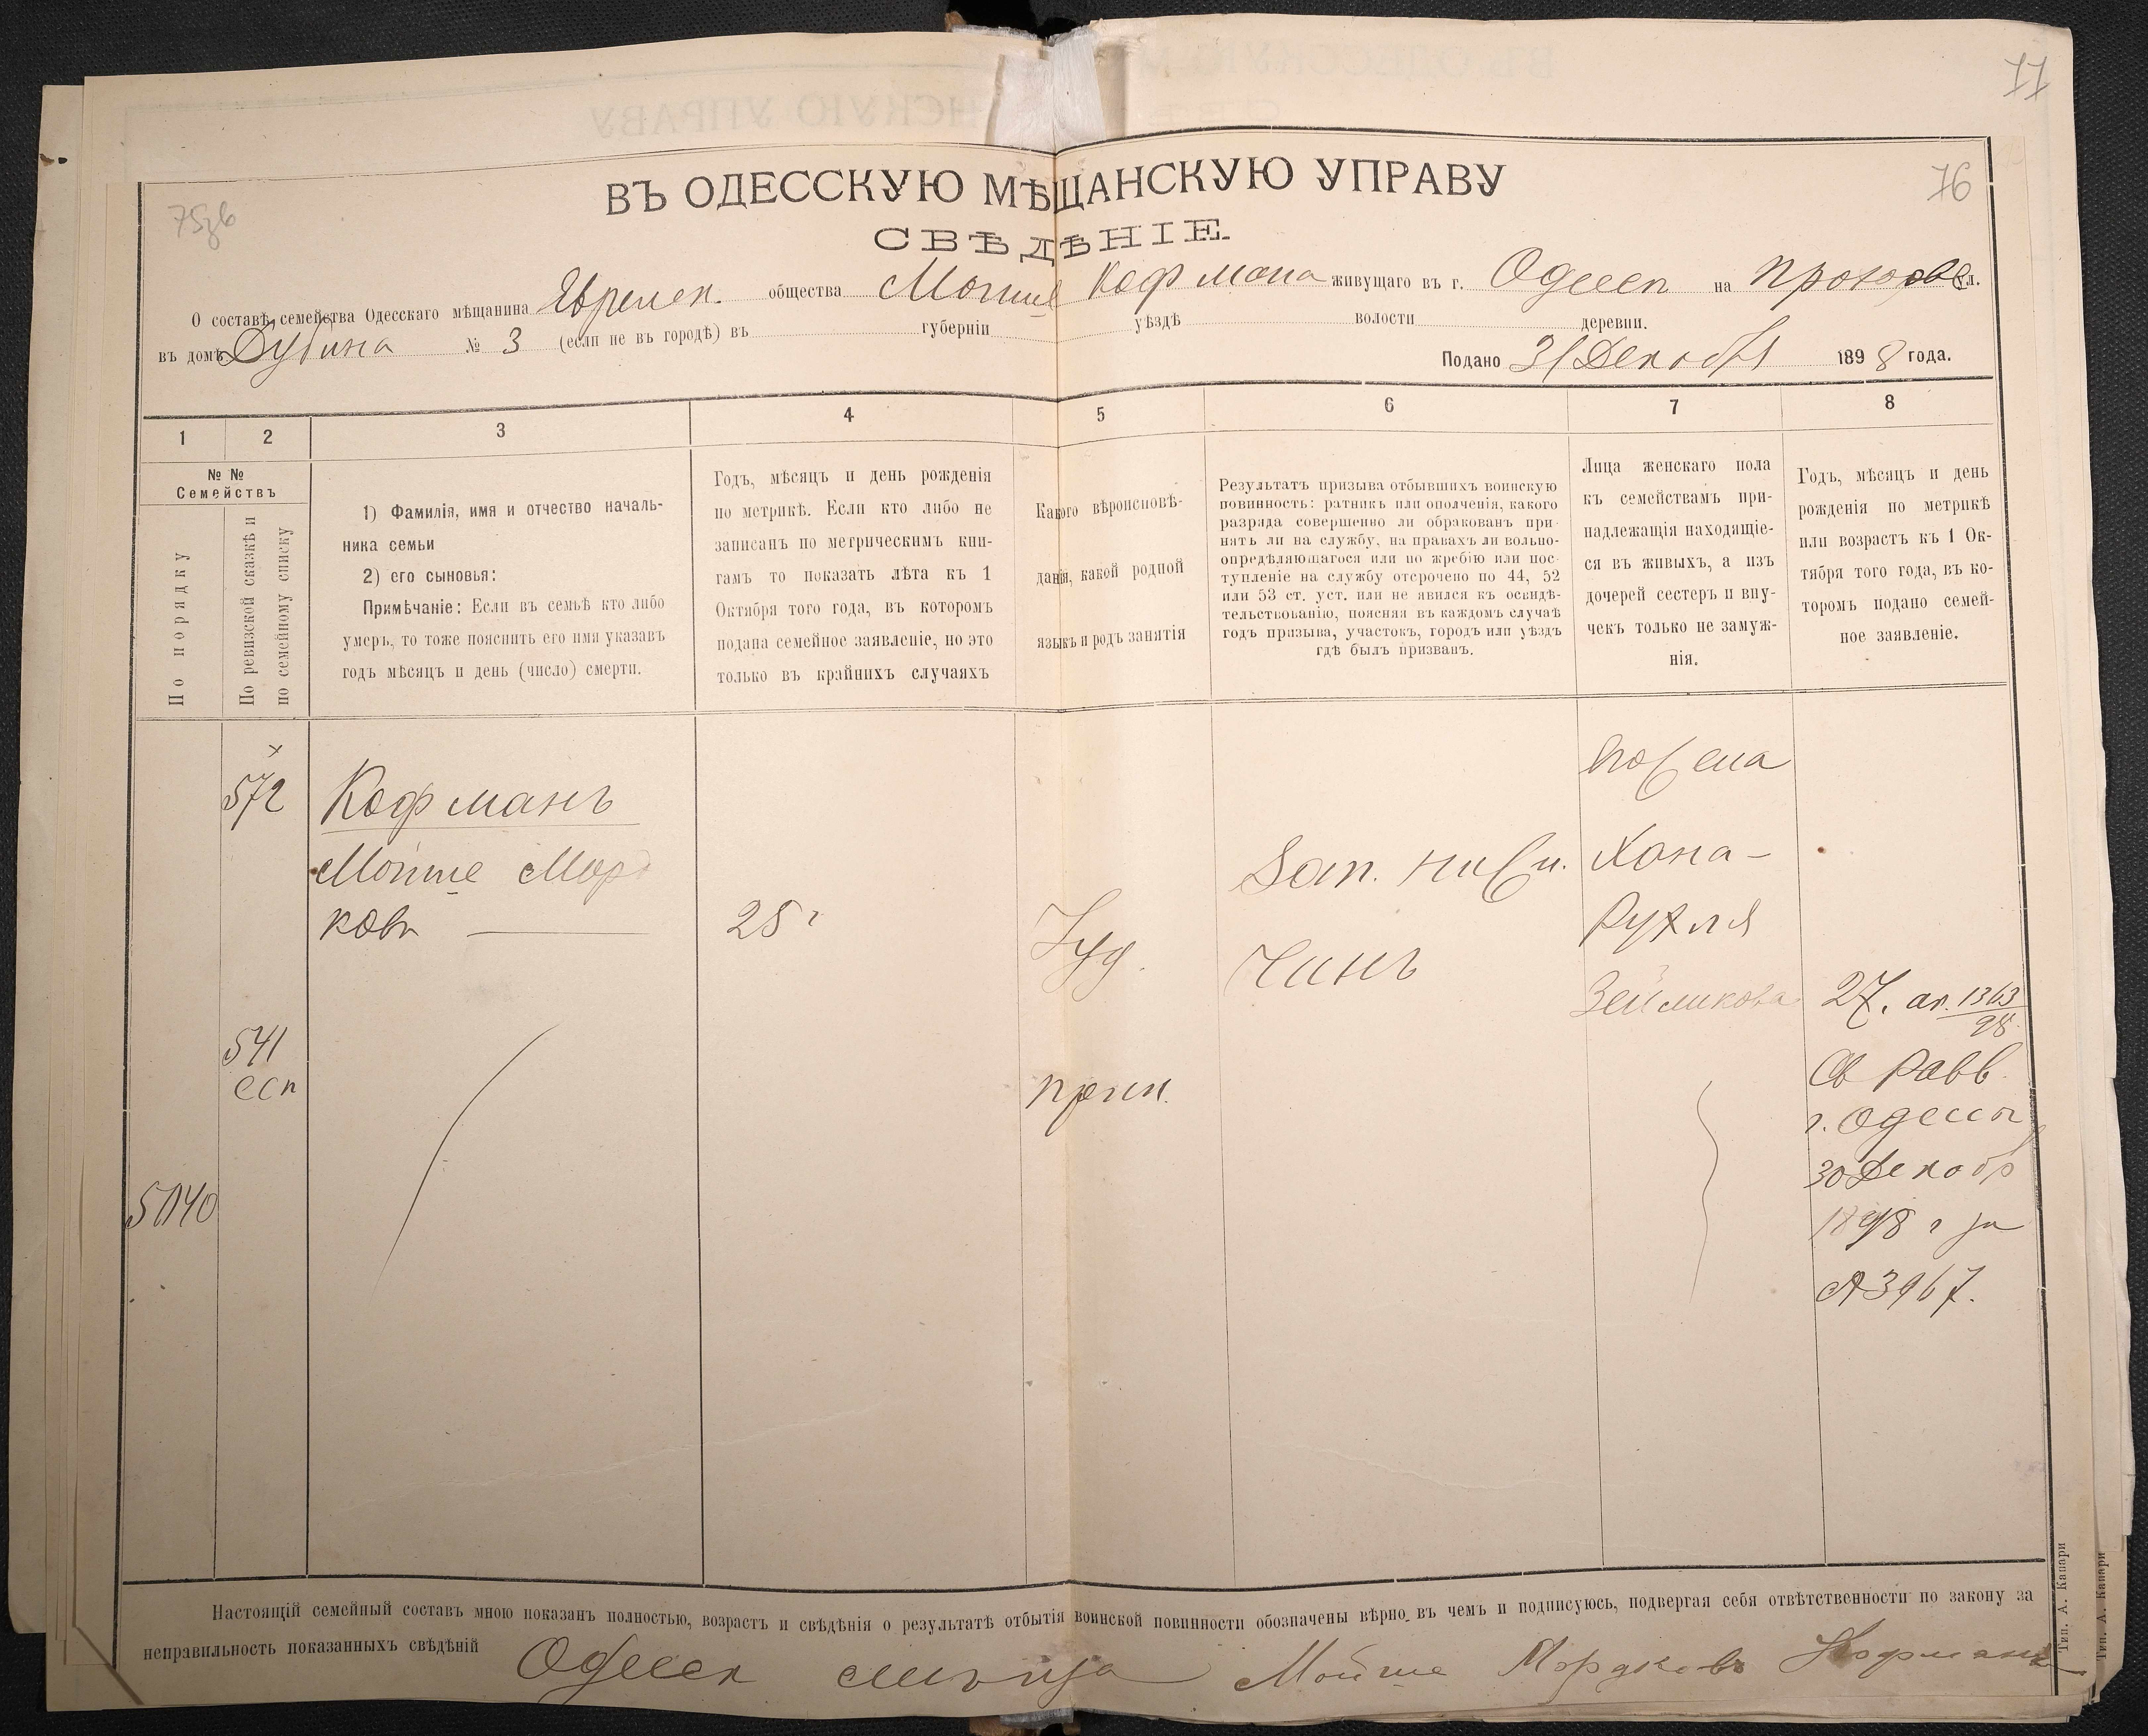 77
ВЪ ОДЕССКУЮ МѢЩАНСКУЮ УПРАВУ
76
СВѢДѢНІЕ
О составѣ семейства Одесскаго мѣщанина Еврейск. общества Мойше Кофмана живущаго въ г. Одессѣ на Прохоров ул.
въ домѣ Дубина № 3 (если не въ городѣ) въ губерніи уѣздѣ волости деревни.
Подано 31 Декабря 1898 года.
1 2 3 4 5 6 7 8
№ №
Семействъ
По порядку
По ревизской сказкѣ и
по семейному списку
1) Фамилія, имя и отчество началь-
ника семьи
2) его сыновья:
Примѣчаніе: Если въ семьѣ кто либо
умеръ, то тоже пояснить его имя указавъ
годъ мѣсяцъ и день (число) смерти.
Годъ, мѣсяцъ и день рожденія
по метрикѣ. Если кто либо не
записанъ по метрическимъ кни-
гамъ то показать лѣта къ 1
Октября того года, въ которомъ
подана семейное заявленіе, но это
только въ крайнихъ случаяхъ
Какого вѣроисповѣ-
данія, какой родной
языкъ и родъ занятія
Результатъ призыва отбывшихъ воинскую
повинность: ратникъ или ополченія, какого
разряда совершенно ли обракованъ при-
нятъ ли на службу, на правахъ ли вольно-
опредѣляющагося или по жребію или пос-
тупленіе на службу отсрочено по 44, 52
или 53 ст. уст. или не явился къ освидѣ-
тельствованію, поясняя въ каждомъ случаѣ
годъ призыва, участокъ, городъ или уѣздъ
гдѣ былъ призванъ.
Лица женскаго пола
къ семействамъ при-
надлежащія находящіе-
ся въ живыхъ, а изъ
дочерей сестеръ и вну-
чекъ только не замуж-
нія.
Годъ, мѣсяцъ и день
рожденія по метрикѣ
или возрастъ къ 1 Ок-
тября того года, въ ко-
торомъ подано семей-
ное заявленіе.
572
Кофманъ
Мойше Морд
ковъ
25 г
Іуд.
Зап. нижн.
Чинъ
жена
Хана-
Рухля
Зейликова
27. ар. 1363/98
Св Равв.
г. Одессы
30 Декабр
1898 г за
№ 3967.
541
есп
прик.
5040
Настоящій семейный составъ мною показанъ полностью, возрастъ и свѣдѣнія о результатѣ отбытія воинской повинности обозначены вѣрно въ чемъ и подписуюсь, подвергая себя отвѣтственности по закону за
неправильность показанныхъ свѣдѣній Одесск мѣщ Мойше Мордковъ Кофманъ
Тип. А. Капари
Тип. А. Капари